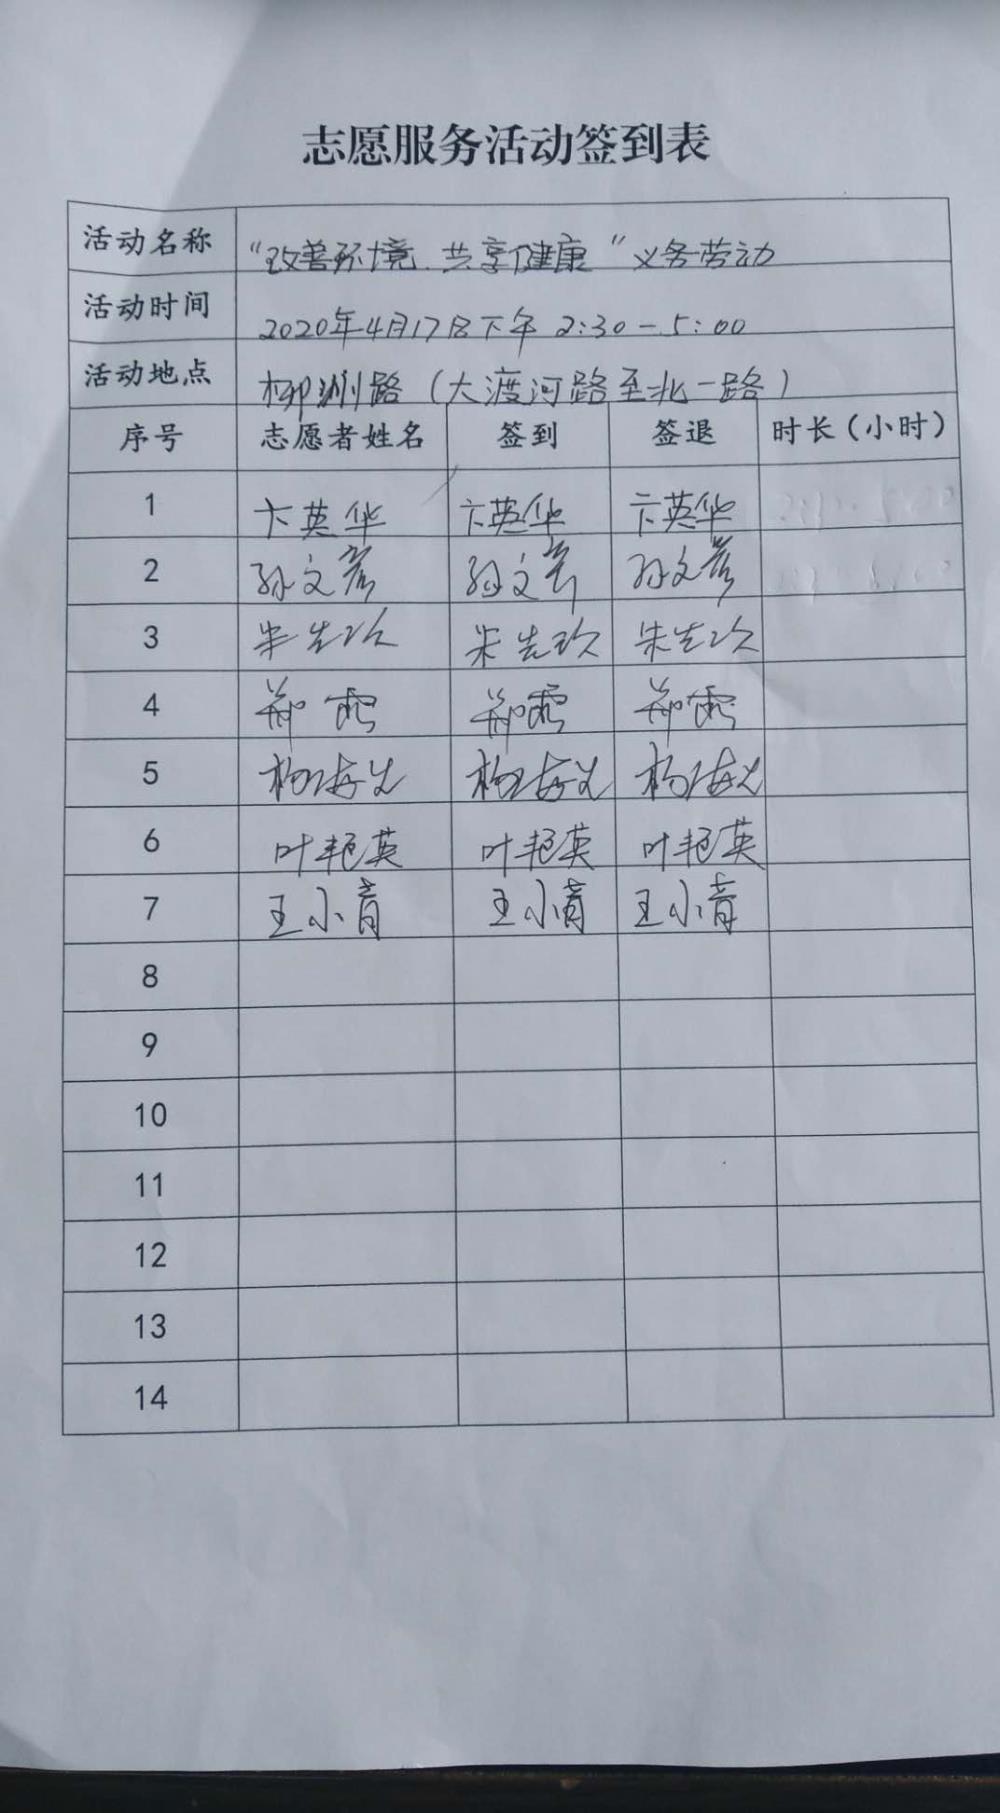 志愿服务活动签到表
活动名称 "改善环境.共享健康"义务劳动
活动时间 2020年4月17日下午 2:30-5:00
活动地点 柳洲路(大渡河路至北一路)
序号 志愿者姓名 签到 签退 时长(小时)
1 卞英华 卞英华 卞英华
2 孙文彦 孙文彦 孙文彦
3 朱先玖 朱先玖 朱先玖
4 郑霞 郑霞 郑霞
5 杨海义 杨海义 杨海义
6 叶艳英 叶艳英 叶艳英
7 王小青 王小青 王小青
8
9
10
11
12
13
14